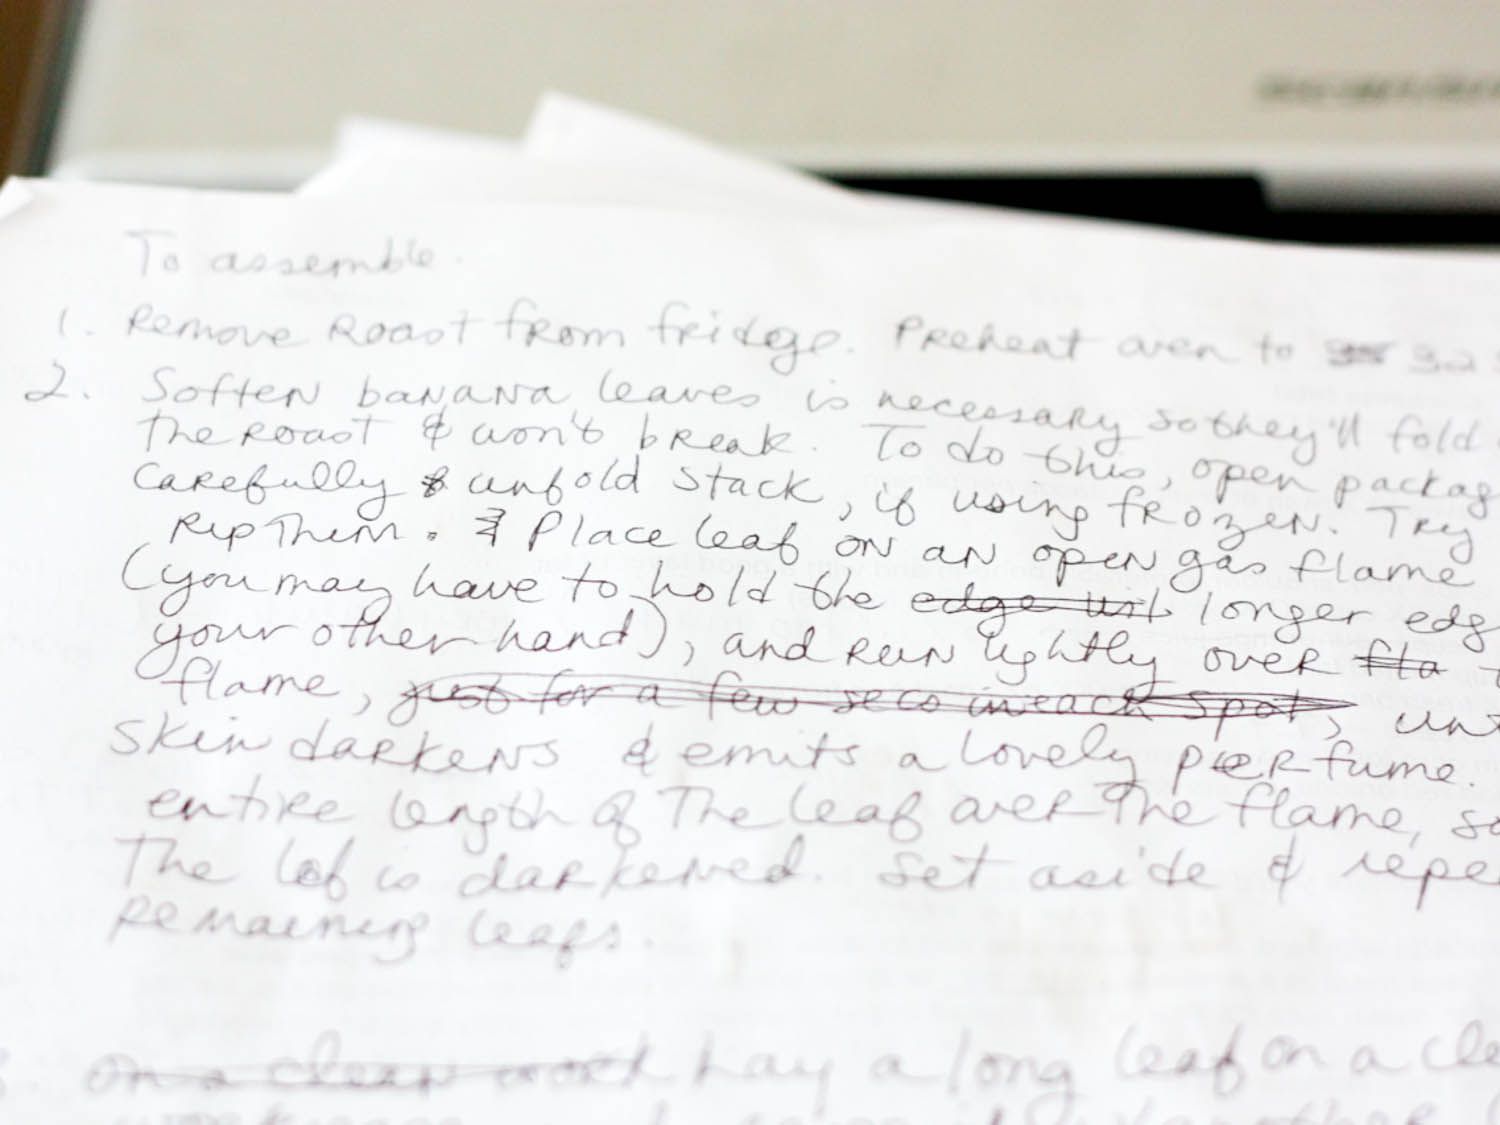 To assemble.
1. Remove Roast from fridge. Preheat oven to 325
2. Soften banana leaves is necessary so they'll fold
the roast & won't break. To do this, open packag
Carefully & unfold stack, if using frozen. Try
rip Them. Place leaf on an open gas flame
(you may have to hold the edge wit longer edg
your other hand), and run lightly over fla t
flame, just for a few secs in each spot, unt
skin darkens & emits a lovely perfume.
entire length of The leaf over The flame, so
The lef is darkened. Set aside & repe
Remaining leafs.
3. On a clean work Lay a long leaf on a cle